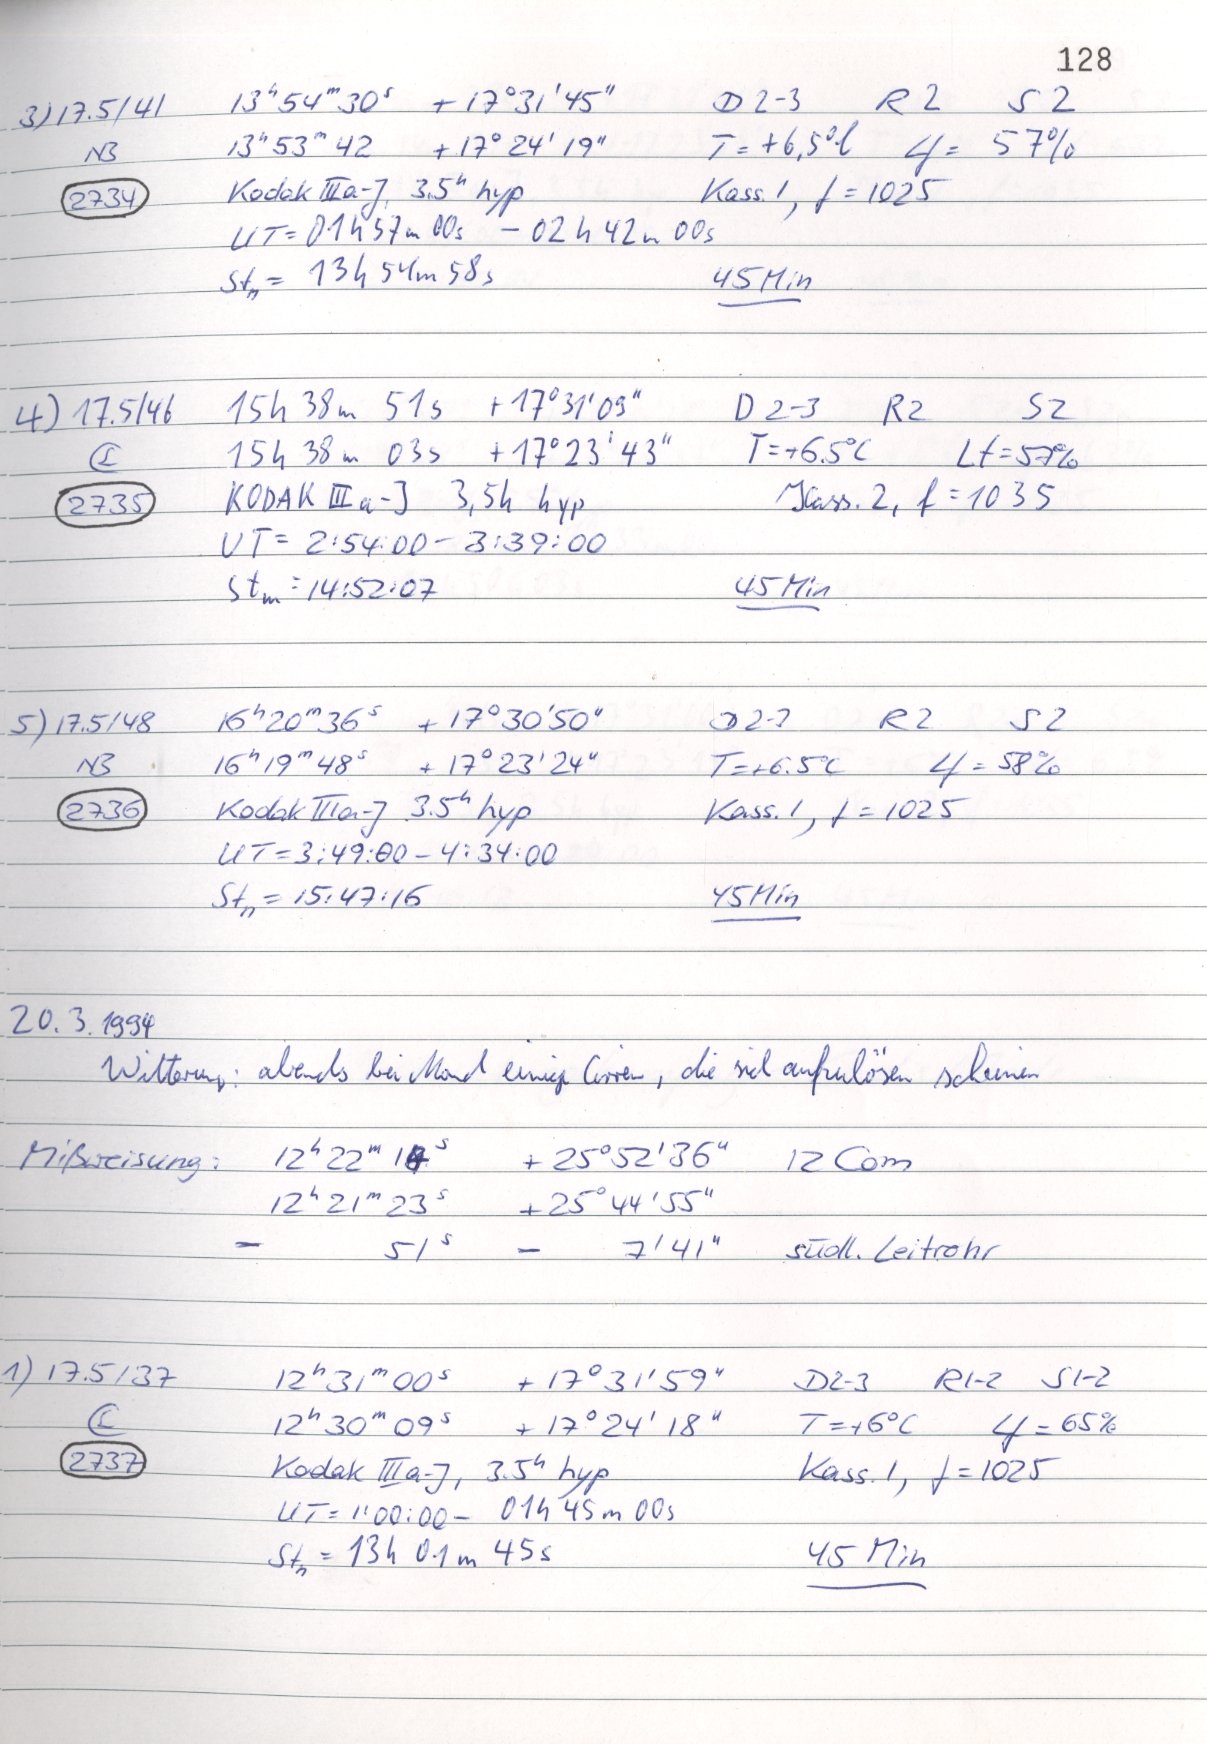 128
3) 17.5/41 13ʰ54ᵐ30ˢ +17°31'45" D 2-3 R 2 S 2
NB 13ʰ53ᵐ42 +17°24'19" T=+6,5°C Lf= 57%
2734 Kodak IIIa-J, 3.5ʰ hyp Kass. 1, f=1025
UT=01h57m00s - 02h42m00s
Stₙ= 13h54m58s 45 Min
4) 17.5/46 15h 38m 51s +17°31'09" D 2-3 R2 S2
15h 38m 03s +17°23'43" T=+6.5°C Lf=57%
2735 KODAK IIIa-J 3,5h hyp Kass. 2, f=1035
UT= 2:54:00 - 3:39:00
Stₘ=14:52:07 45 Min
5) 17.5/48 16ʰ20ᵐ36ˢ +17°30'50" D2-3 R2 S2
NB 16ʰ19ᵐ48ˢ +17°23'24" T=+6.5°C Lf=58%
2736 Kodak IIIa-J 3.5ʰ hyp Kass. 1, f=1025
UT=3:49:00 - 4:34:00
Stₙ=15:47:16 45 Min
20.3.1994
Witterung: abends bei Mond einige Cirren, die sich aufzulösen scheinen
Mißweisung: 12ʰ22ᵐ14ˢ +25°52'36" 12 Com
12ʰ21ᵐ23ˢ +25°44'55"
- 51ˢ - 7'41" südl. Leitrohr
1) 17.5/37 12ʰ31ᵐ00ˢ +17°31'59" D2-3 R1-2 S1-2
12ʰ30ᵐ09ˢ +17°24'18" T=+6°C Lf=65%
2737 Kodak IIIa-J, 3.5ʰ hyp Kass. 1, f=1025
UT=1:00:00 - 01h45m00s
Stₙ=13h01m45s 45 Min